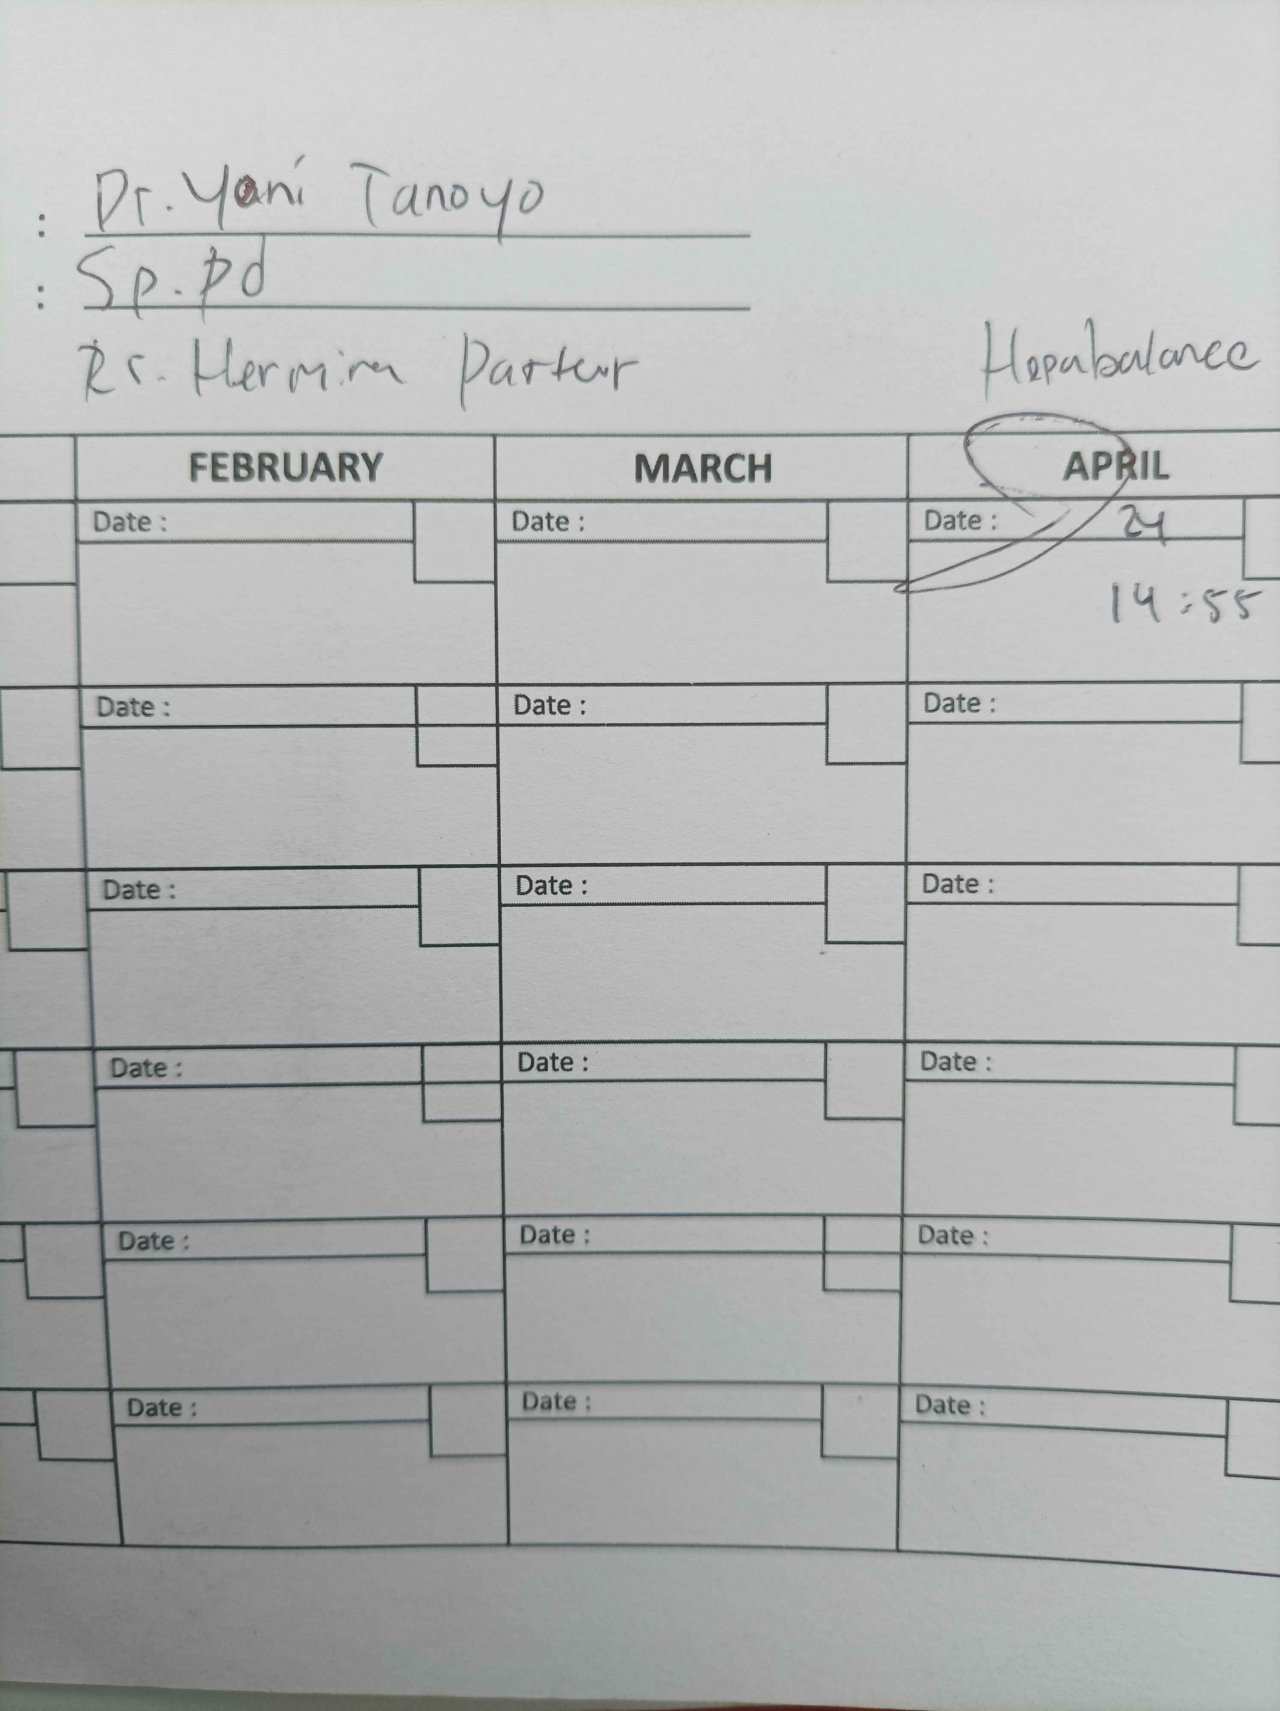 : Dr. Yani Tanoyo
: Sp. Pd
Rs. Hermina Pasteur
Hepabalance
FEBRUARY MARCH APRIL
Date : Date : Date : 24
14:55
Date : Date : Date :
Date : Date : Date :
Date : Date : Date :
Date : Date : Date :
Date : Date : Date :